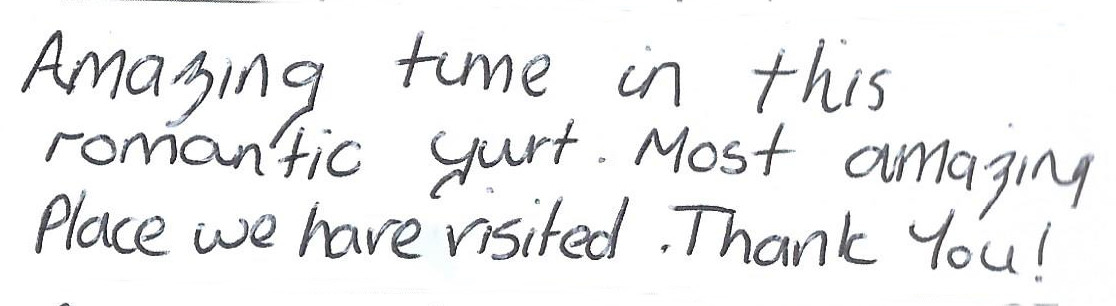 Amazing time in this
romantic yurt. Most amazing
Place we have visited. Thank You!